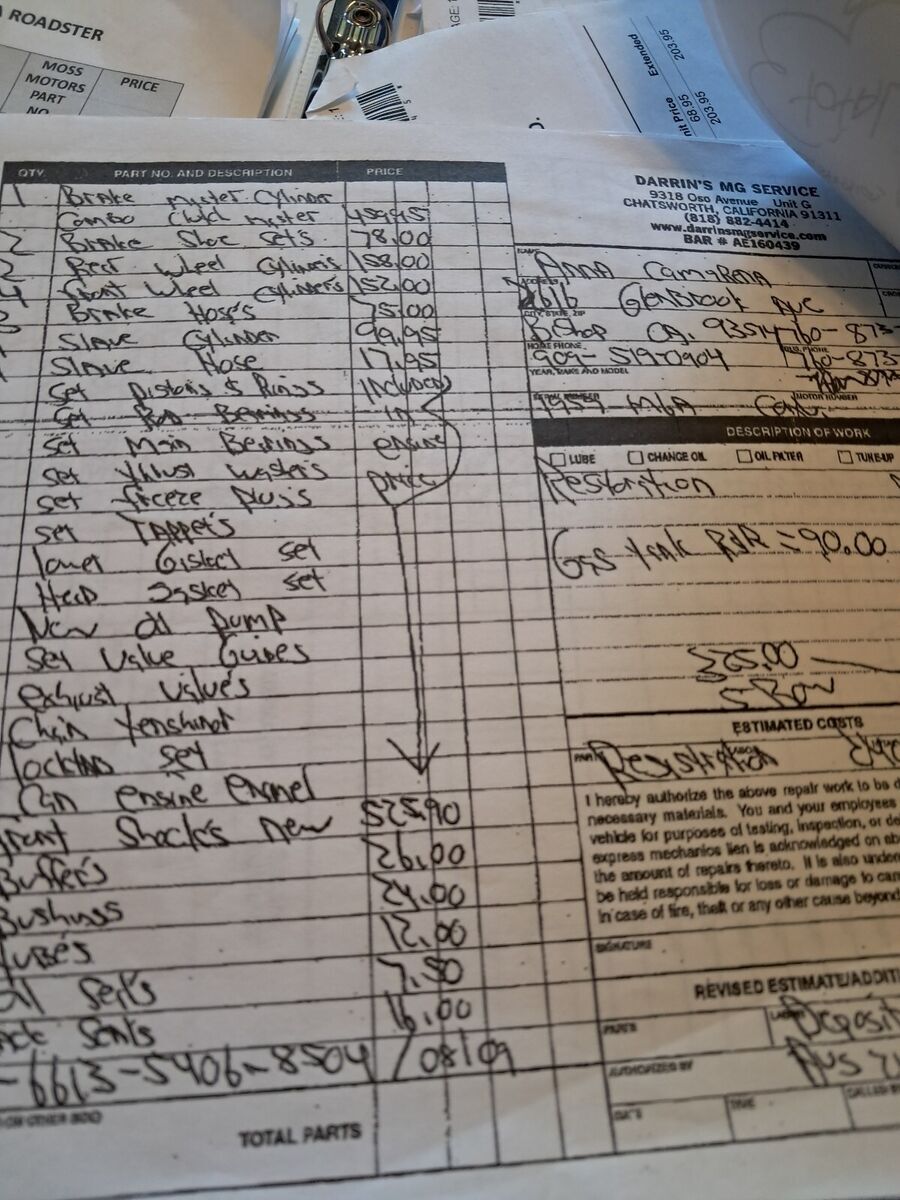 A ROADSTER
MOSS MOTORS PART NO.
PRICE
Extended
203.95
Unit Price
68.95
203.95
QTY. PART NO. AND DESCRIPTION PRICE
1 Brake master cylinder
Combo Clutch master 459.95
2 Brake Shoe sets 78.00
2 Rear Wheel Cylinders 158.00
4 front Wheel Cylinder's 152.00
3 Brake Hose's 75.00
1 Slave Cylinder 99.95
1 Slave Hose 17.95
Set Pistons & Rings Included
Set Rod Berrings in
Set Main Berrings engine
Set thrust washer's price
Set freeze plus's
Set TAppet's
lower Gisket set
Head Gasket set
New oil pump
Set Valve Guides
exhaust valve's
Chain tenshinor
locking set
Can engine enamel
front Shock's new 525.90
Buffer's 26.00
Bushings 24.00
tube's 12.00
oil Seil's 7.50
16.00
-6613-5906-8504 / 08/09
TOTAL PARTS
DARRIN'S MG SERVICE
9318 Oso Avenue Unit G
CHATSWORTH, CALIFORNIA 91311
(818) 882-4414
www.darrinsmgservice.com
BAR # AE160439
NAME
Anna Camarena
ADDRESS
Glenbrook Ave
CITY, STATE, ZIP
Bishop CA. 93514 760-873-
HOME PHONE BUS. PHONE
909-519-0904 760-873-
YEAR, MAKE AND MODEL
SERIAL NUMBER MOTOR NUMBER
1959 MGA
DESCRIPTION OF WORK
LUBE CHANGE OIL OIL FILTER TUNE-UP
Restoration
Gas tank R&R = 90.00
325.00
ESTIMATED COSTS
Registration
I hereby authorize the above repair work to be d
necessary materials. You and your employees
vehicle for purposes of testing, inspection, or de
express mechanics lien is acknowledged on ab
the amount of repairs thereto. It is also under
be held responsible for loss or damage to car
in case of fire, theft or any other cause beyond
SIGNATURE
REVISED ESTIMATE/ADDITI
PARTS LABOR
Deposit
AUTHORIZED BY
DATE TIME CALLED BY